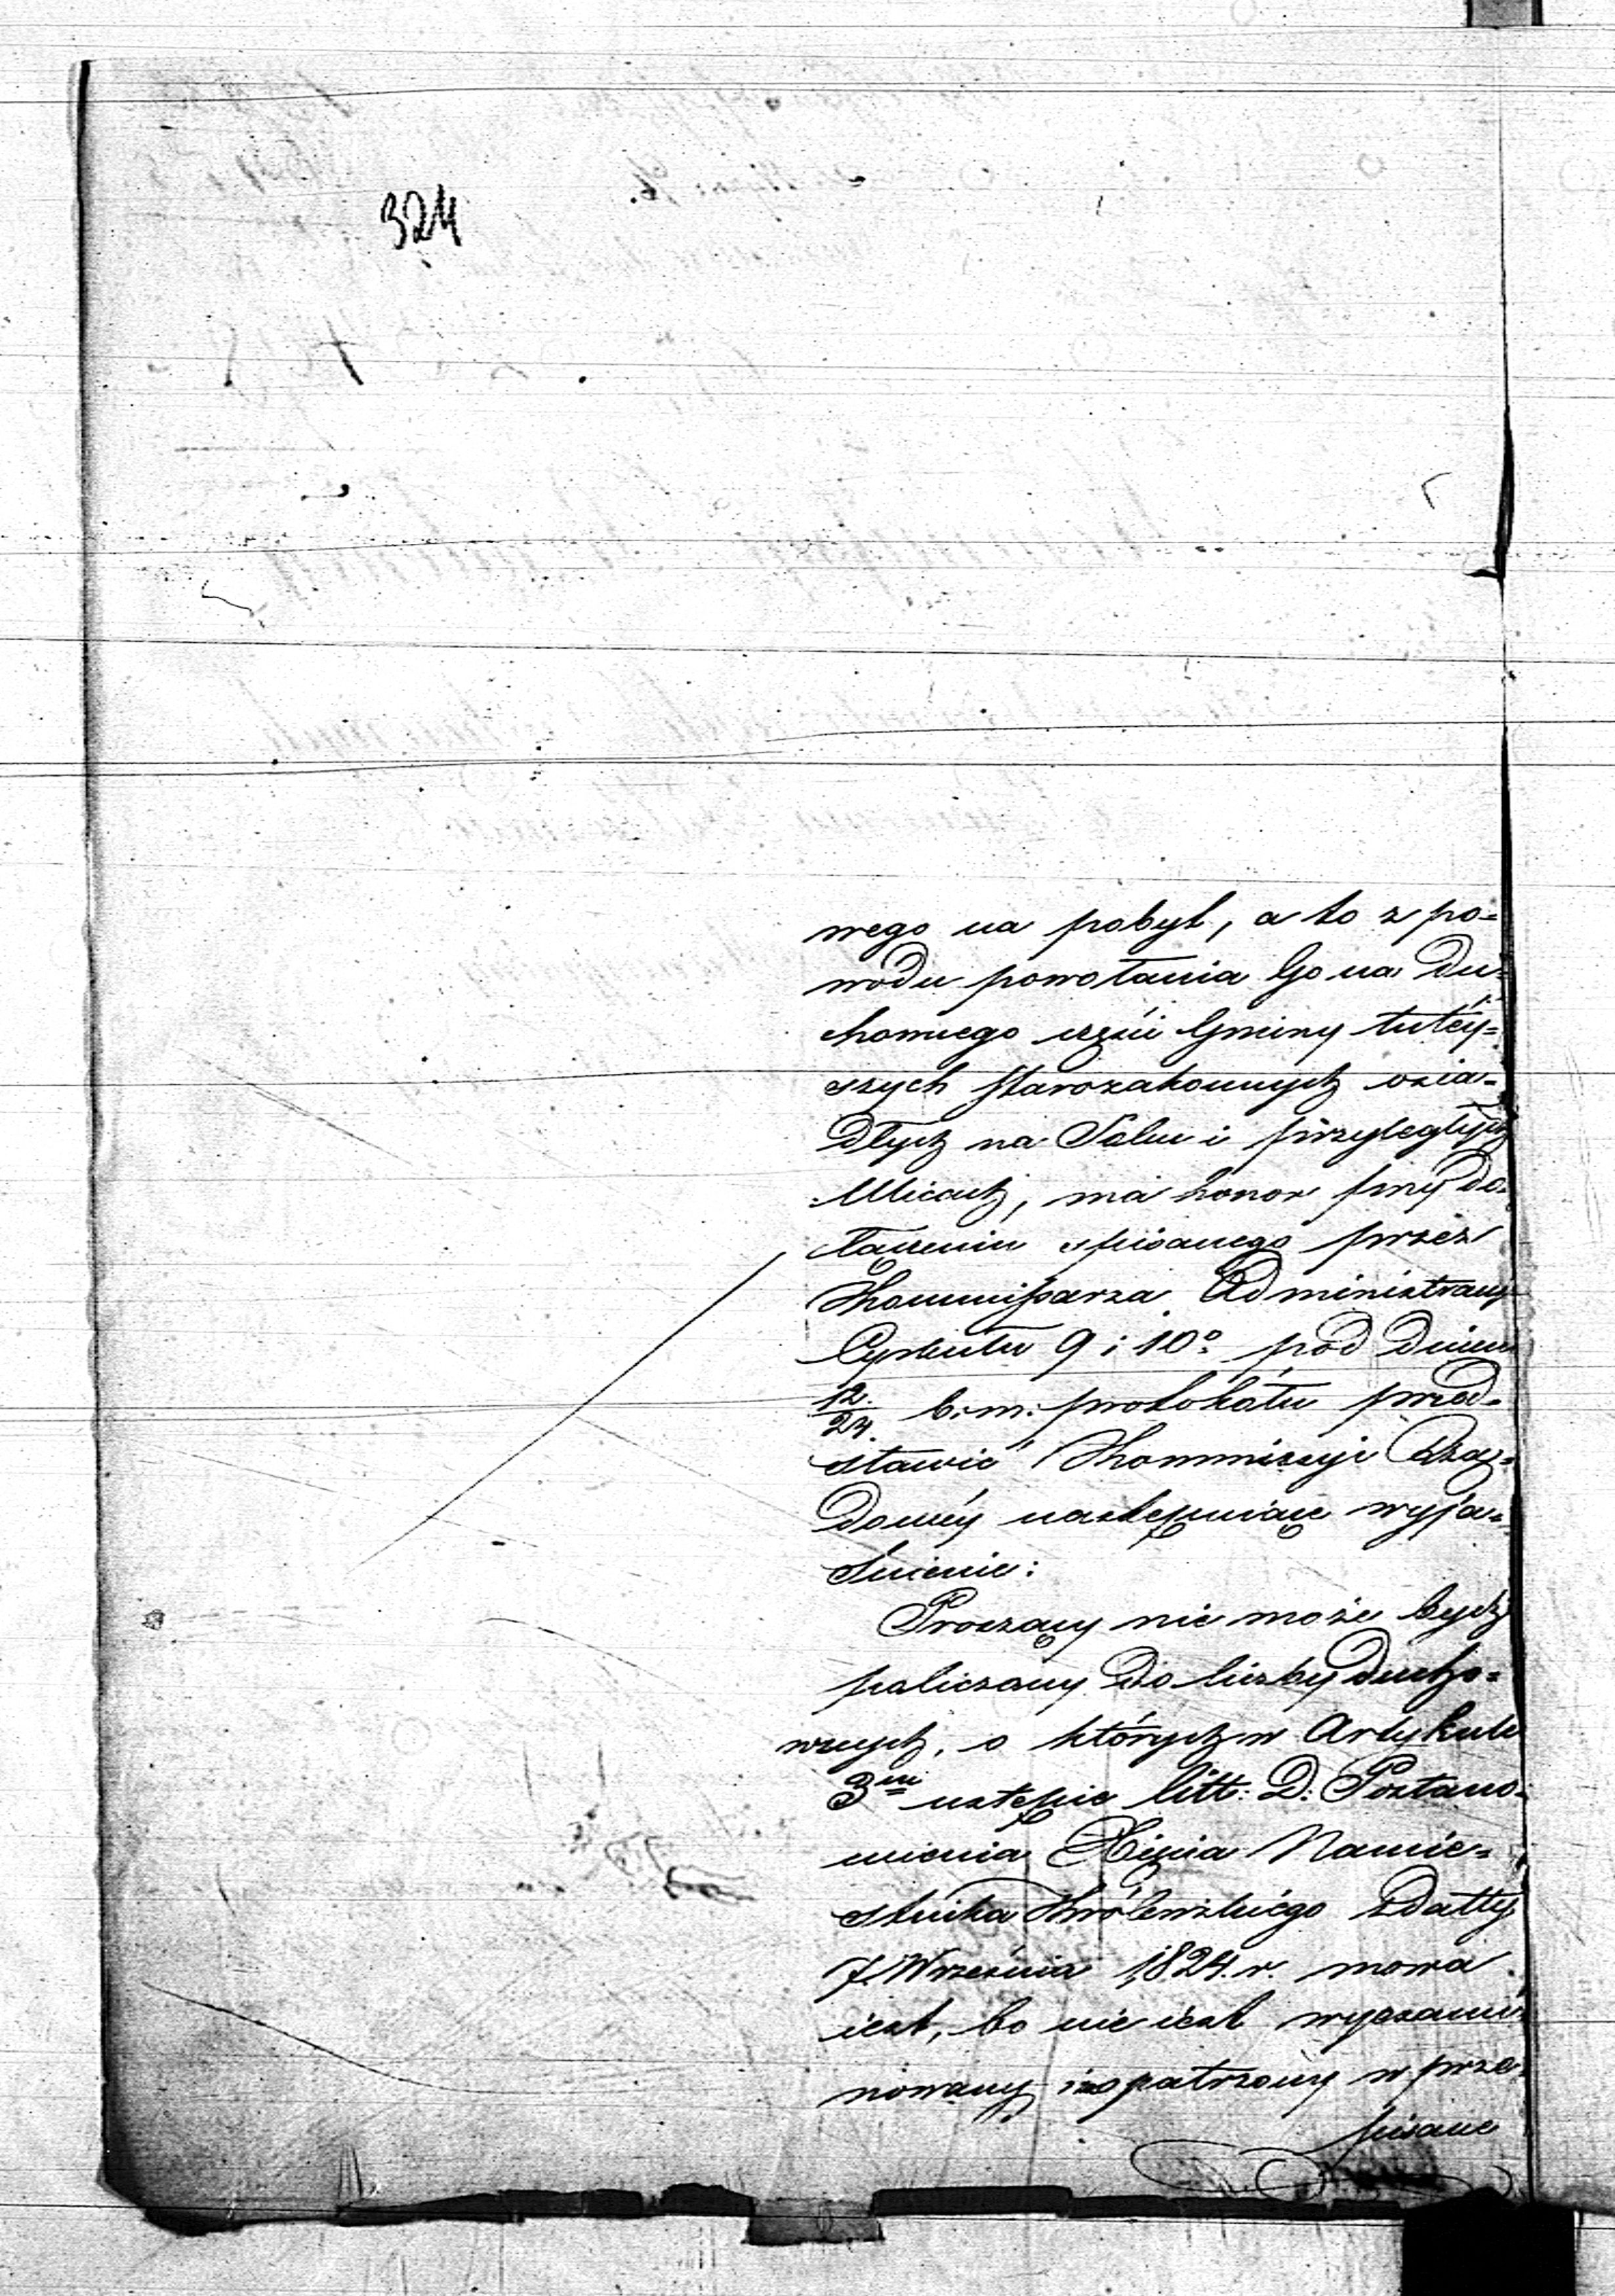 324
wego na pobyt, a to z po=
wodu powołania Go na Du=
chownego części Gminy tutéy=
szych Starozakonnych osia=
dłych na Solcu i przyległych
Ulicach, ma honor przy do=
łączeniu spisanego przez
Kommissarza Administracyi
Cyrkułu 9 i 10º pod Dniem
12/24. b. m. protokołu przed=
stawić Kommissyi Rzą=
dowéy następuiące wyja=
śnienie:
Proszący nie może bydź
policzony do liczby Ducho=
wnych, o których w Artykule
3m ustępie litt: D. Postano=
wienia Xięcia Namie=
stnika Królewskiégo z datty
7 Września 1824. r. mowa
iest, bo nie iest wyexami=
nowany i opatrzony w prze=
pisane